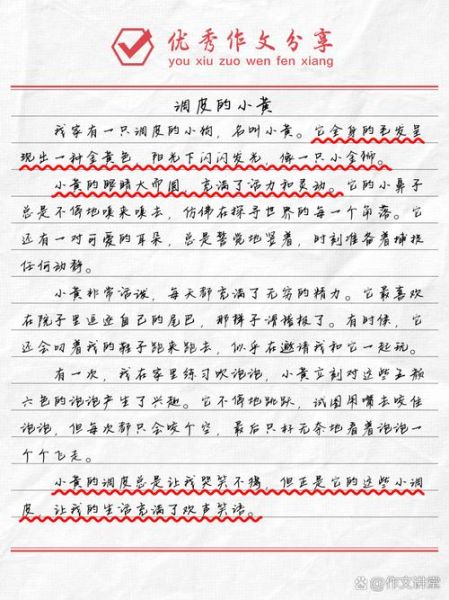 优秀作文分享
you xiu zuo wen fen xiang
调皮的小黄
我家有一只调皮的小狗，名叫小黄。它全身的毛发呈
现出一种金黄色，阳光下闪闪发光，像一只小金狮。
小黄的眼睛大而圆，充满了活力和灵动。它的小鼻子
总是不停地嗅来嗅去，仿佛在探寻世界的每一个角落。它
还有一对可爱的耳朵，总是警觉地竖着，时刻准备着捕捉
任何动静。
小黄非常活泼，每天都充满了无穷的精力。它最喜欢
在院子里追逐自己的尾巴，那样子滑稽极了。有时候，它
还会叼着我的鞋子跑来跑去，似乎在邀请我和它一起玩。
有一次，我在家里练习吹泡泡，小黄立刻对这些五颜
六色的泡泡产生了兴趣。它不停地跳跃，试图用嘴去咬住
泡泡，但每次都只会咬个空，最后只好无奈地看着泡泡一
个个飞走。
小黄的调皮总是让我哭笑不得，但正是它的这些小调
皮，让我的生活充满了欢声笑语。
@作文讲堂